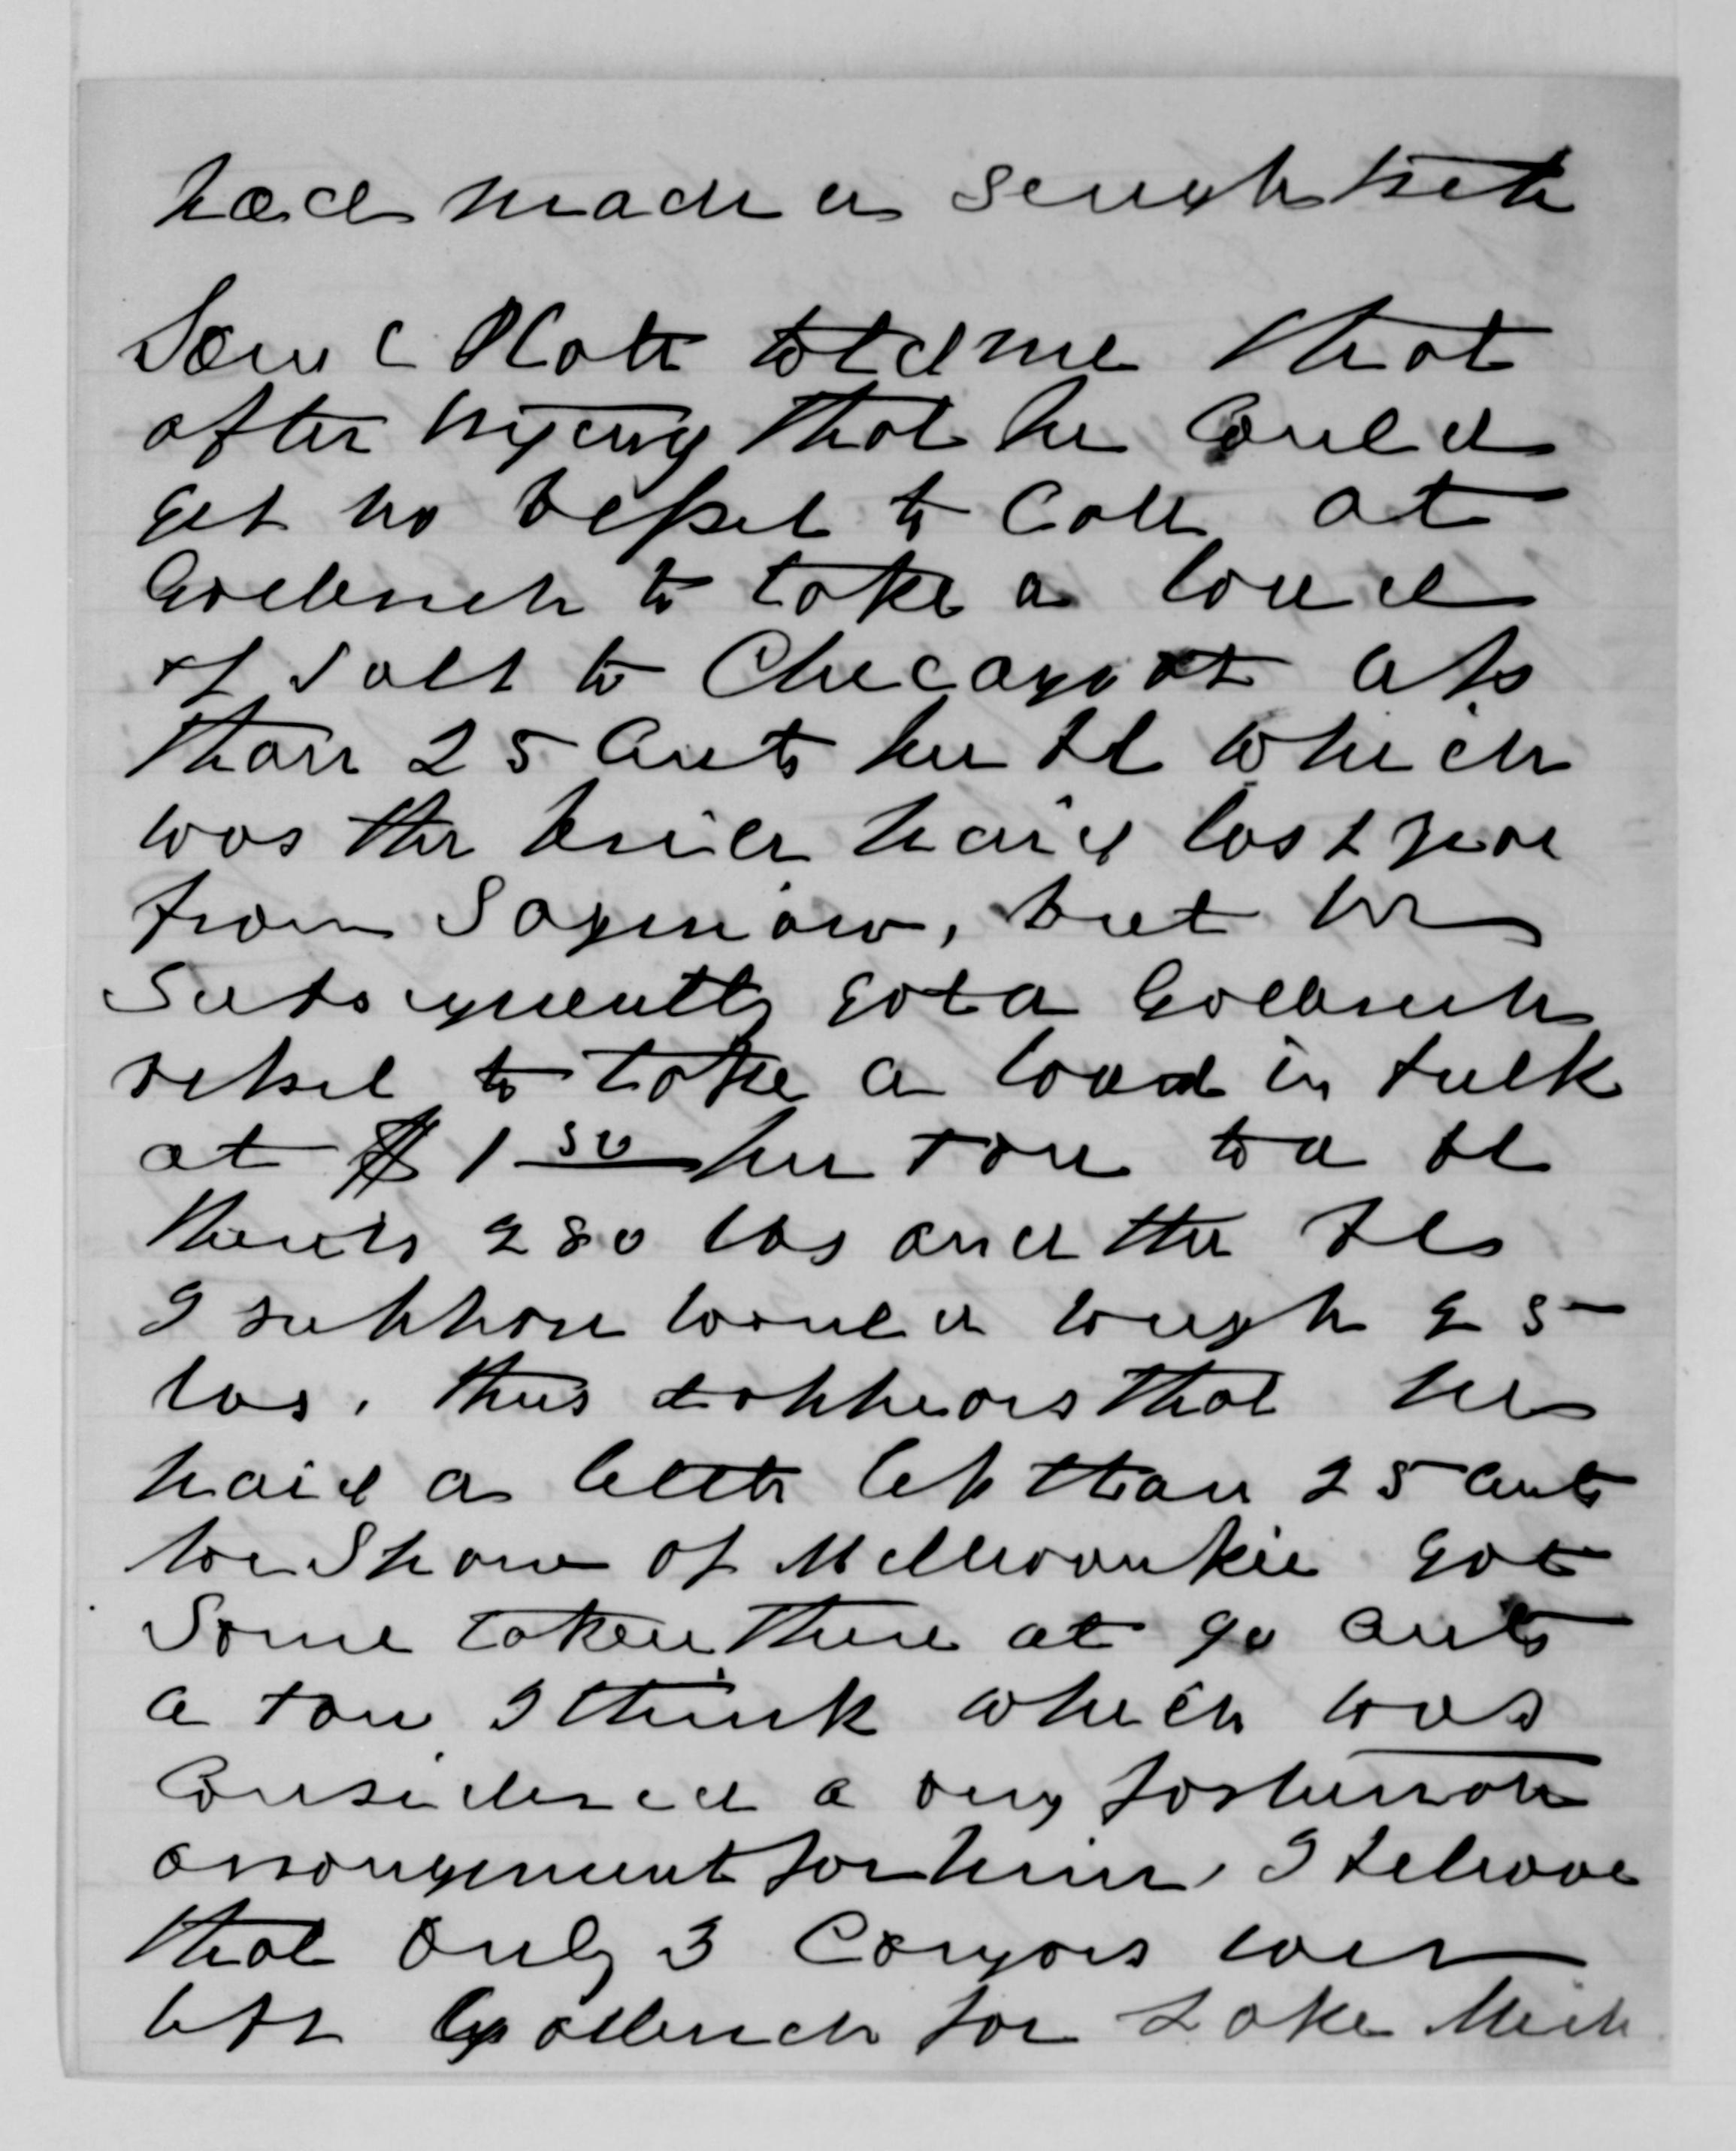 had made a
Sam C Platt told me that
after trying that he could
get no vessel to call at
Goderich to take a load
of Salt to Chicago at less
than 25 cents per bl which
was the price paid last year
from Saginaw, but he
Subsequently got a Goderich
vessel to take a load in bulk
at $1 50 per ton to a bl
there is 280 lbs and the bls
I suppose would weigh 25
lbs. thus it appears that he
paid a little less than 25 cents
of Milwaukie got
Some taken there at 90 cents
a ton I think which was
Considered a very fortunate
arrangement for him, I believe
that only 3 Cargoes were
left Goderich for Lake Mich